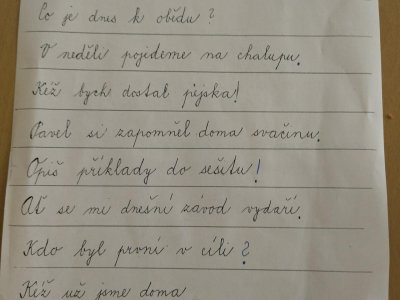 Co je dnes k obědu?
V neděli pojedeme na chalupu.
Kéž bych dostal pejska!
Pavel si zapomněl doma svačinu.
Opiš příklady do sešitu!
Ať se mi dnešní závod vydaří.
Kdo byl první v cíli?
Kéž už jsme doma